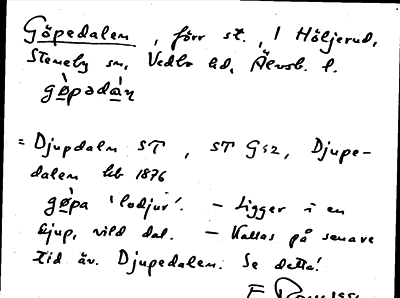 Göpedalen, förr st., i Höljerud,
Steneby sn, Vedbo hd, Älvsb. l.
= Djupdalen ST, ST G52, Djupe-
dalen hb 1876
göpa 'lodjur'. – Ligger i en
djup, vild dal. – Kallas på senare
tid äv. Djupedalen. Se detta!